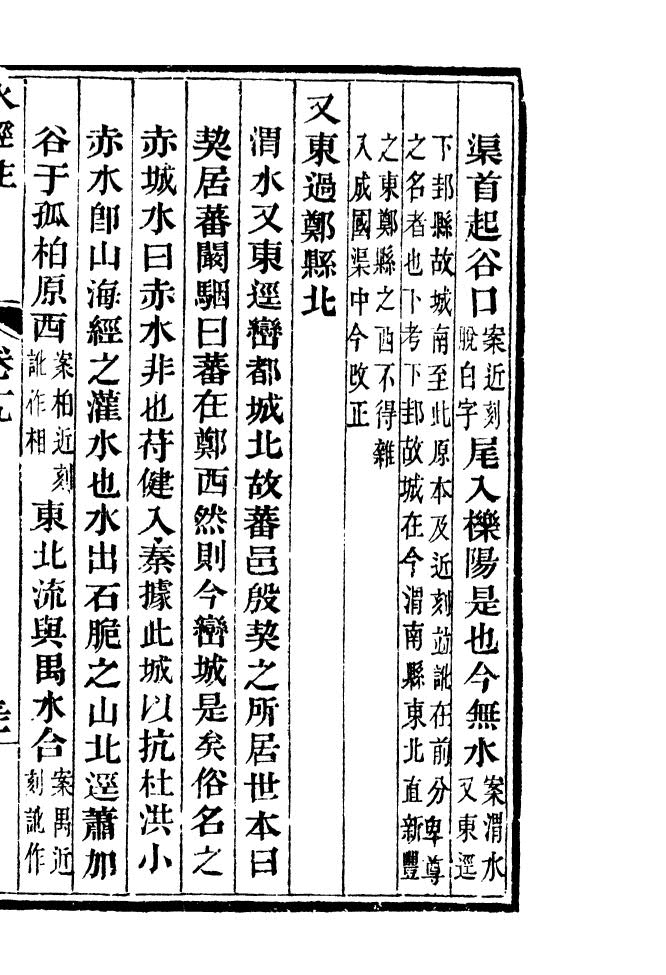 渠首起谷口案近刻脫白字尾入櫟陽是也今無水案渭水又東逕
下邽縣故城南至此原本及近刻竝訛在前分卑尊之名者也下考下邽故城在今渭南縣東北直新豐
之東鄭縣之西不得雜入成國渠中今改正
又東過鄭縣北
渭水又東逕巒都城北故蕃邑殷契之所居世本曰
契居蕃闞駰曰蕃在鄭西然則今巒城是矣俗名之
赤城水曰赤水非也苻健入秦據此城以抗杜洪小
赤水卽山海經之灌水也水出石脆之山北逕蕭加
谷于孤柏原西案柏近刻訛作相東北流與禺水合案禺近刻訛作
水經注 卷十九